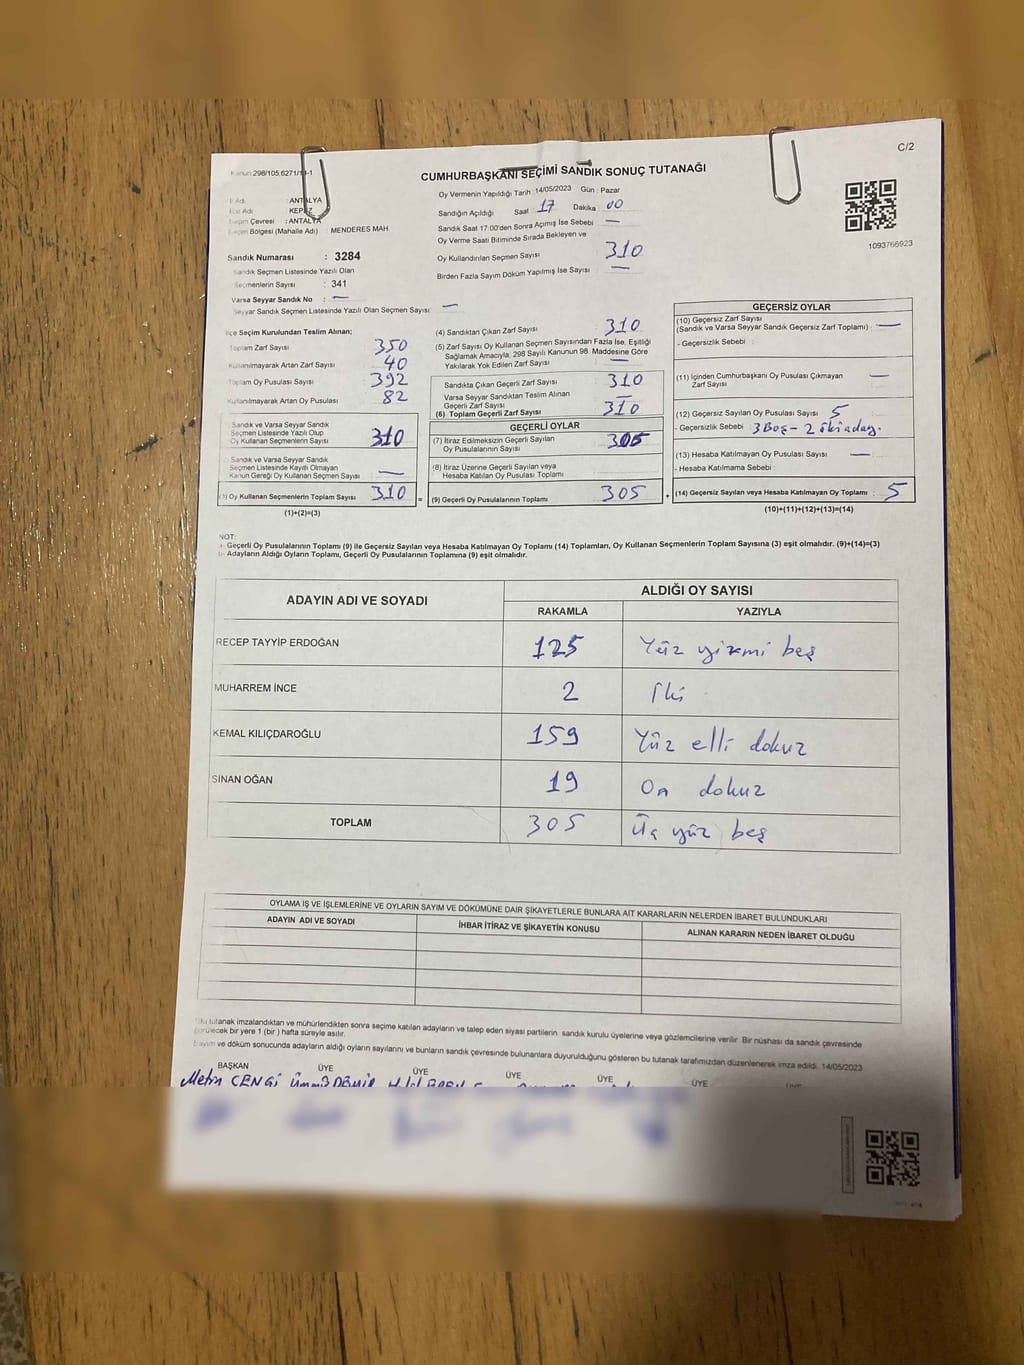 C/2
298/105,6271/
CUMHURBAŞKANI SEÇİMİ SANDIK SONUÇ TUTANAĞI
1093766923
: ANTALYA
: KEPEZ
Çevresi : ANTALYA
Bölgesi (Mahalle Adı) : MENDERES MAH
Sandık Numarası : 3284
Sandık Seçmen Listesinde Yazılı Olan
Seçmenlerin Sayısı : 341
Varsa Seyyar Sandık No : —
Seyyar Sandık Seçmen Listesinde Yazılı Olan Seçmen Sayısı : —
Oy Vermenin Yapıldığı Tarih : 14/05/2023 Gün : Pazar
Sandığın Açıldığı Saat : 17 Dakika : 00
Sandık Saat 17:00'den Sonra Açımış İse Sebebi : —
Oy Verme Saati Bitiminde Sırada Bekleyen ve
Oy Kullandırılan Seçmen Sayısı : 310
Birden Fazla Sayım Döküm Yapılmış İse Sayısı : —
İlçe Seçim Kurulundan Teslim Alınan;
Toplam Zarf Sayısı : 350
Kullanılmayarak Artan Zarf Sayısı : 40
Toplam Oy Pusulası Sayısı : 392
Kullanılmayarak Artan Oy Pusulası : 82
Sandık ve Varsa Seyyar Sandık
Seçmen Listesinde Yazılı Olup
Oy Kullanan Seçmenlerin Sayısı : 310
Sandık ve Varsa Seyyar Sandık
Seçmen Listesinde Kayıtlı Olmayan
Kanun Gereği Oy Kullanan Seçmen Sayısı : —
(3) Oy Kullanan Seçmenlerin Toplam Sayısı : 310 =
(1)+(2)=(3)
(4) Sandıktan Çıkan Zarf Sayısı : 310
(5) Zarf Sayısı Oy Kullanan Seçmen Sayısından Fazla İse, Eşitliği
Sağlamak Amacıyla; 298 Sayılı Kanunun 98. Maddesine Göre
Yakılarak Yok Edilen Zarf Sayısı : —
Sandıkta Çıkan Geçerli Zarf Sayısı : 310
Varsa Seyyar Sandıktan Teslim Alınan
Geçerli Zarf Sayısı : —
(6) Toplam Geçerli Zarf Sayısı : 310
GEÇERLİ OYLAR
(7) İtiraz Edilmeksizin Geçerli Sayılan
Oy Pusulalarının Sayısı : 305
(8) İtiraz Üzerine Geçerli Sayılan veya
Hesaba Katılan Oy Pusulası Toplamı :
(9) Geçerli Oy Pusulalarının Toplamı : 305 +
GEÇERSİZ OYLAR
(10) Geçersiz Zarf Sayısı
(Sandık ve Varsa Seyyar Sandık Geçersiz Zarf Toplamı) : —
- Geçersizlik Sebebi :
(11) İçinden Cumhurbaşkanı Oy Pusulası Çıkmayan
Zarf Sayısı : —
(12) Geçersiz Sayılan Oy Pusulası Sayısı : 5
- Geçersizlik Sebebi : 3 Boş - 2 iki aday.
(13) Hesaba Katılmayan Oy Pusulası Sayısı : —
- Hesaba Katılmama Sebebi :
(14) Geçersiz Sayılan veya Hesaba Katılmayan Oy Toplamı : 5
(10)+(11)+(12)+(13)=(14)
NOT:
a- Geçerli Oy Pusulalarının Toplamı (9) ile Geçersiz Sayılan veya Hesaba Katılmayan Oy Toplamı (14) Toplamları, Oy Kullanan Seçmenlerin Toplam Sayısına (3) eşit olmalıdır. (9)+(14)=(3)
b- Adayların Aldığı Oyların Toplamı, Geçerli Oy Pusulalarının Toplamına (9) eşit olmalıdır.
ADAYIN ADI VE SOYADI ALDIĞI OY SAYISI
RAKAMLA YAZIYLA
RECEP TAYYİP ERDOĞAN 125 Yüz yirmi beş
MUHARREM İNCE 2 İki
KEMAL KILIÇDAROĞLU 159 Yüz elli dokuz
SİNAN OĞAN 19 On dokuz
TOPLAM 305 Üç yüz beş
OYLAMA İŞ VE İŞLEMLERİNE VE OYLARIN SAYIM VE DÖKÜMÜNE DAİR ŞİKAYETLERLE BUNLARA AİT KARARLARIN NELERDEN İBARET BULUNDUKLARI
ADAYIN ADI VE SOYADI İHBAR İTİRAZ VE ŞİKAYETİN KONUSU ALINAN KARARIN NEDEN İBARET OLDUĞU
tutanak imzalandıktan ve mühürlendikten sonra seçime katılan adayların ve talep eden siyasi partilerin sandık kurulu üyelerine veya gözlemcilerine verilir. Bir nüshası da sandık çevresinde
görülecek bir yere 1 (bir) hafta süreyle asılır.
Sayım ve döküm sonucunda adayların aldığı oyların sayılarını ve bunların sandık çevresinde bulunanlara duyurulduğunu gösteren bu tutanak tarafımızdan düzenlenerek imza edildi. 14/05/2023
BAŞKAN ÜYE ÜYE ÜYE ÜYE ÜYE
Metin CENGİ